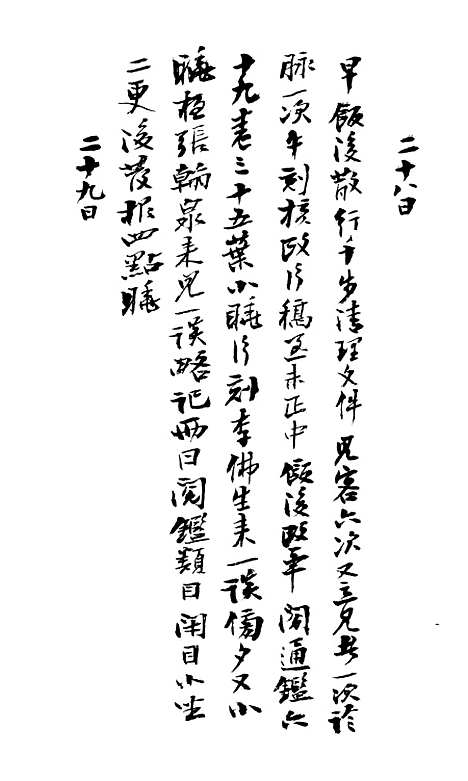 二十八日
早飯後散行千步清理文件見客六次又立見者一次診
脉一次午刻核改片稿至未正中飯後改畢閱通鑑六
十九卷三十五葉小睡片刻李佛生来一談傍夕又小
睡夜張翰泉来見一談略記兩日閱鑑類目閉目小坐
二更後發报四點睡
二十九日